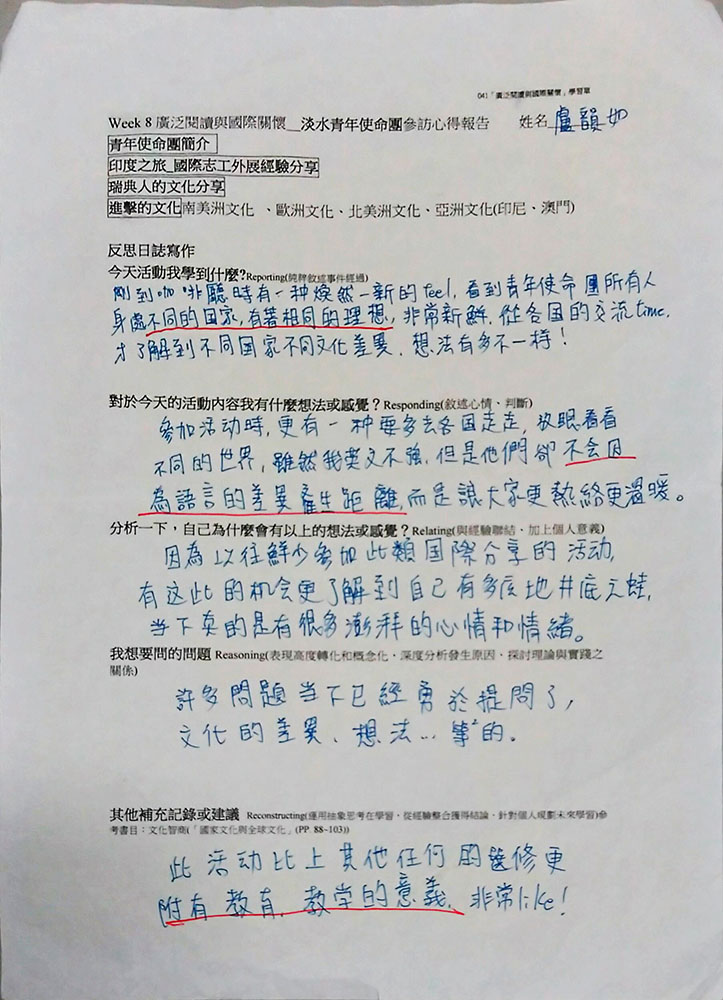 041「廣泛閱讀與國際關懷」學習單
Week 8 廣泛閱讀與國際關懷__淡水青年使命團參訪心得報告 姓名 盧韻如
青年使命團簡介
印度之旅_國際志工外展經驗分享
瑞典人的文化分享
進擊的文化南美洲文化 、歐洲文化、北美洲文化、亞洲文化(印尼、澳門)
反思日誌寫作
今天活動我學到什麼?Reporting(純粹敘述事件經過)
剛到咖啡廳時有一种煥然一新的feel, 看到青年使命團所有人
身處不同的国家,有著相同的理想,非常新鮮.從各国的交流time.
才了解到不同国家不同文化差異、想法有多不一样!
對於今天的活動內容我有什麼想法或感覺?Responding(敘述心情、判斷)
參加活动時,更有一种要多去各国走走,放眼看看
不同的世界,雖然我英文不強,但是他們卻不会因
為語言的差異產生距離,而是讓大家更熱絡更溫暖。
分析一下,自己為什麼會有以上的想法或感覺?Relating(與經驗聯結、加上個人意義)
因為以往鮮少參加此類国際分享的活动,
有这此的机会更了解到自己有多底地井底之蛙,
当下真的是有很多澎湃的心情和情緒。
我想要問的問題 Reasoning(表現高度轉化和概念化、深度分析發生原因、探討理論與實踐之
關係)
許多問題当下已經勇於提問了,
文化的差異、想法…等²的。
其他補充記錄或建議 Reconstructing(運用抽象思考在學習、從經驗整合獲得結論、針對個人規劃未來學習)參
考書目:文化智商(「國家文化與全球文化」(PP 88~103))
此活动比上其他任何的選修更
附有教育、教学的意義、非常like!